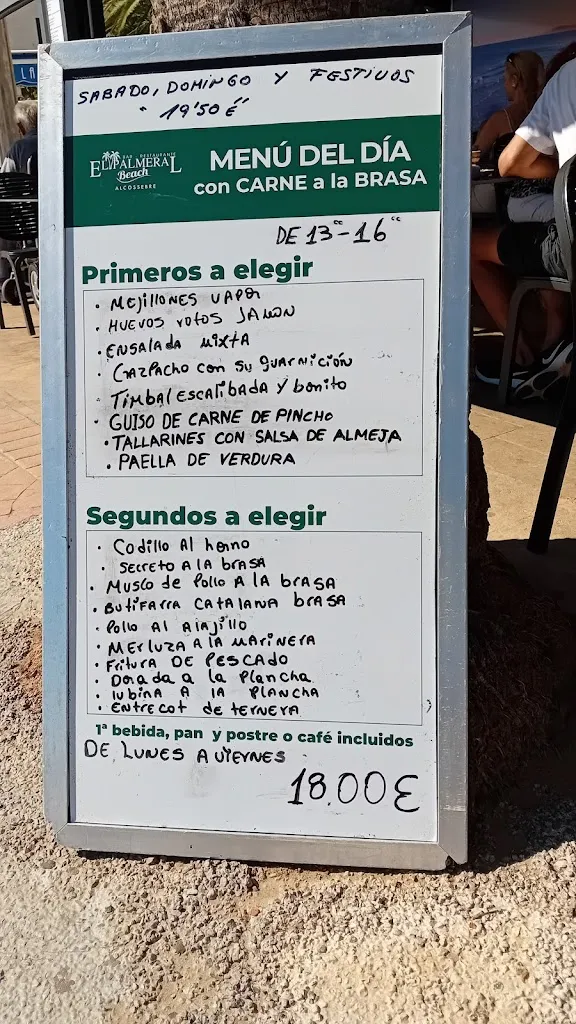 SABADO, DOMINGO Y FESTIVOS
"19'50 €"
BAR RESTAURANTE
EL PALMERAL
Beach
ALCOSSEBRE
MENÚ DEL DÍA
con CARNE a la BRASA
DE 13"-16"
Primeros a elegir
• MEJILLONES VAPOR
• HUEVOS ROTOS JAMON
• ENSALADA MIXTA
• GAZPACHO CON SU GUARNICIÓN
• TIMBAL ESCALIBADA Y BONITO
• GUISO DE CARNE DE PINCHO
• TALLARINES CON SALSA DE ALMEJA
• PAELLA DE VERDURA
Segundos a elegir
• Codillo Al horno
• SECRETO A LA brASA
• MUSLO de Pollo A LA brASA
• BUTIFARRA CATALANA BRASA
• Pollo Al AlAjillo
• MERLUZA A LA MARINERA
• FRITURA DE PESCADO
• Dorada a la Plancha
• lubina A la PLANCHA
• ENTRECOT de TERNERA
1ª bebida, pan y postre o café incluidos
DE LUNES A VIERNES
18.00€
LA